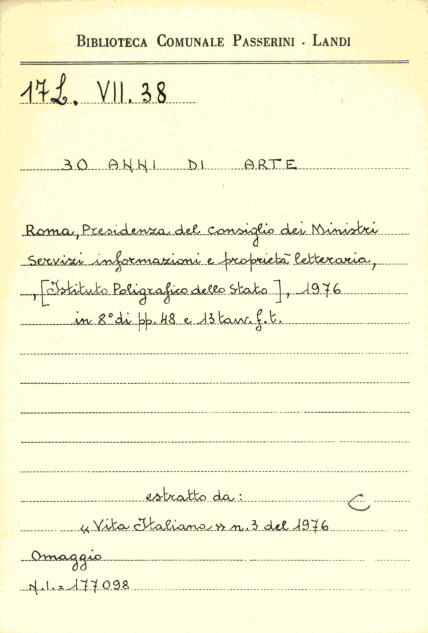 BIBLIOTECA COMUNALE PASSERINI - LANDI
17L. VII. 38
30 ANNI DI ARTE
Roma, Presidenza del consiglio dei Ministri
servizi informazioni e proprietà letteraria,
, [Istituto Poligrafico dello Stato], 1976
in 8° di pp. 48 e 13 tav. f. t.
estratto da: C
« Vita Italiana » n. 3 del 1976
Omaggio
N.I. = 177098